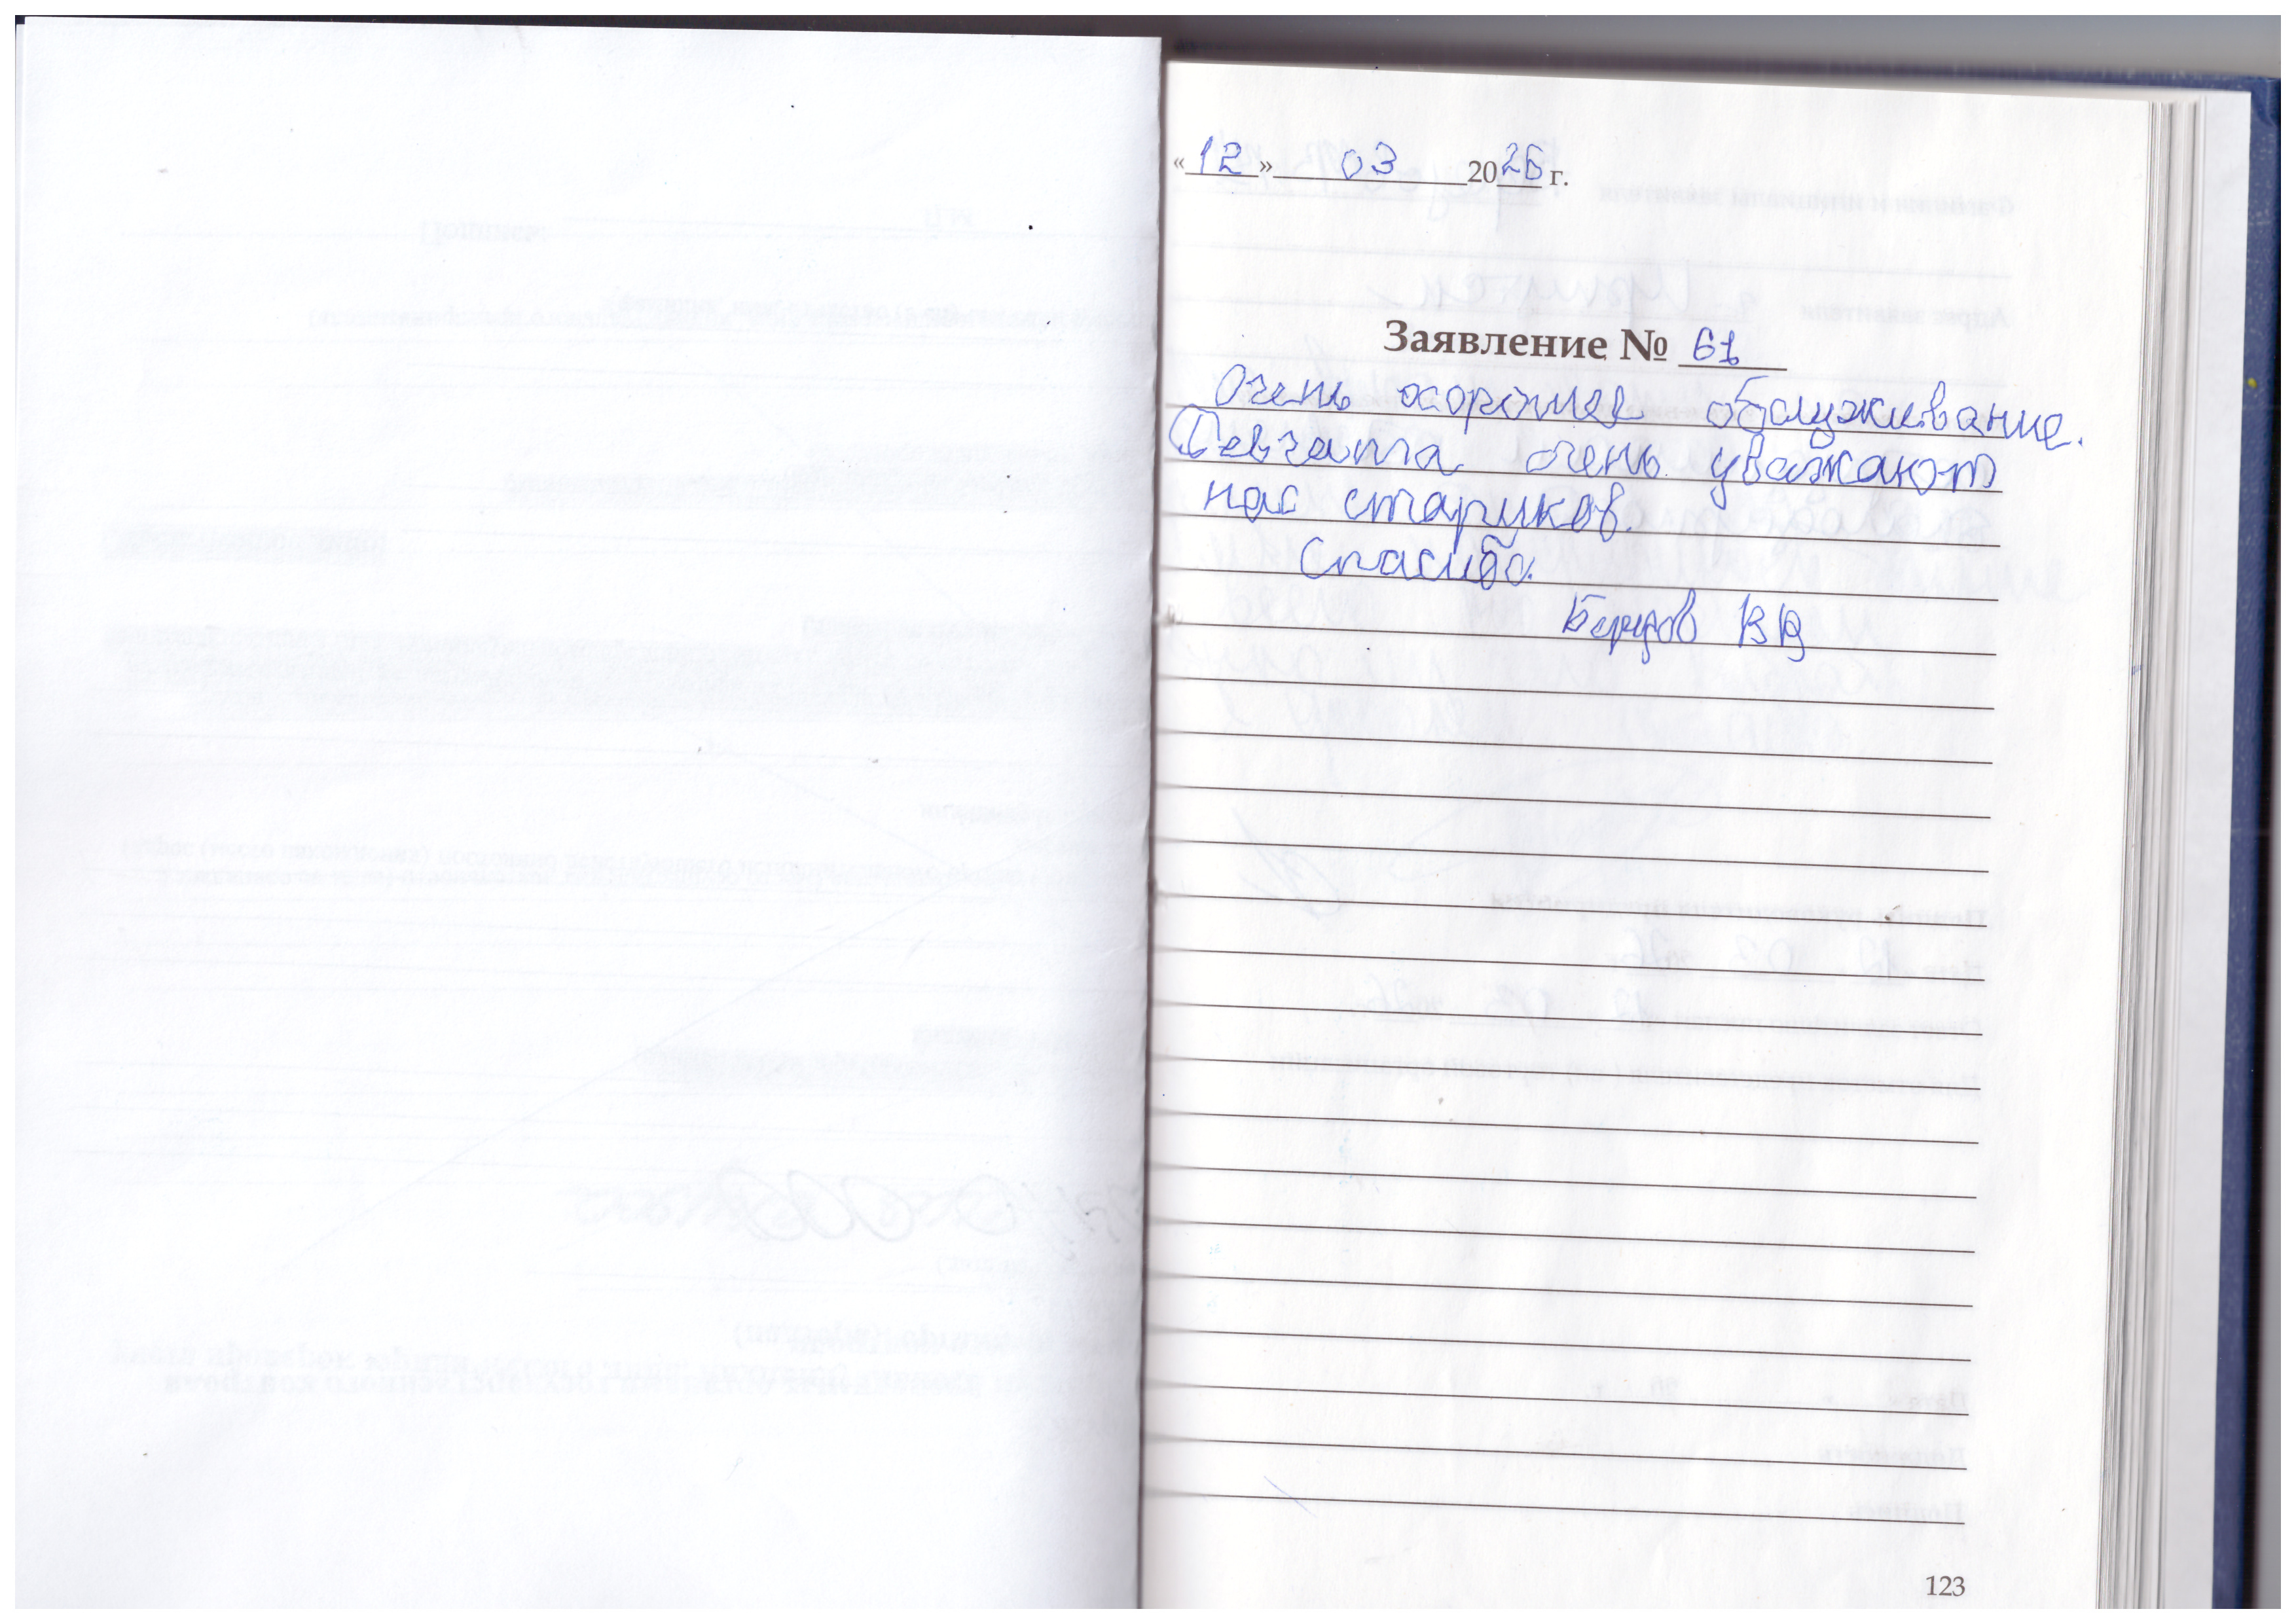 «12» 03 2026 г.
Заявление № 61
Очень хорошее обслуживание.
Девчата очень уважают
нас стариков.
Спасибо.
ВВ
123